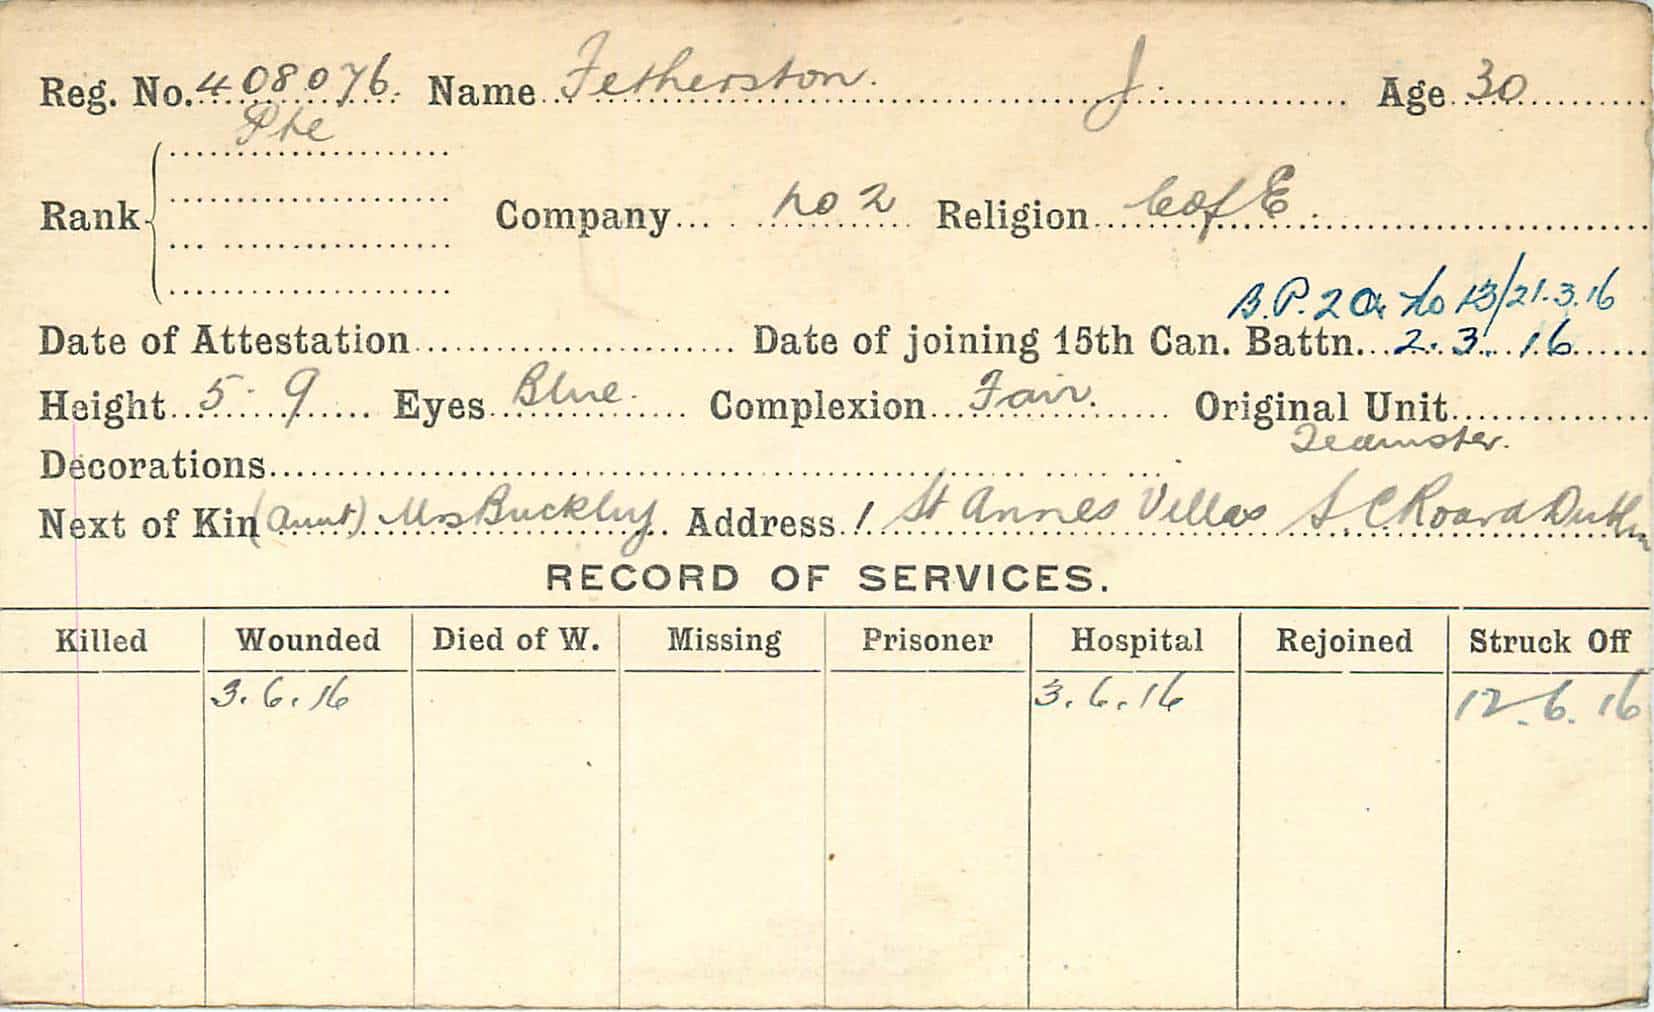 Reg. No. 408076. Name Fetherston. J. Age 30
Pte
Rank Company No 2 Religion C of E
B.P. 2 No 13/21.3.16
Date of Attestation Date of joining 15th Can. Battn. 2.3.16
Height 5 9 Eyes Blue. Complexion Fair. Original Unit
Teamster.
Decorations
Next of Kin (aunt) Mrs Buckley. Address 1 St Annes Villas S. C Roard Dublin
RECORD OF SERVICES.
Killed Wounded Died of W. Missing Prisoner Hospital Rejoined Struck Off
3.6.16 3.6.16 12.6.16